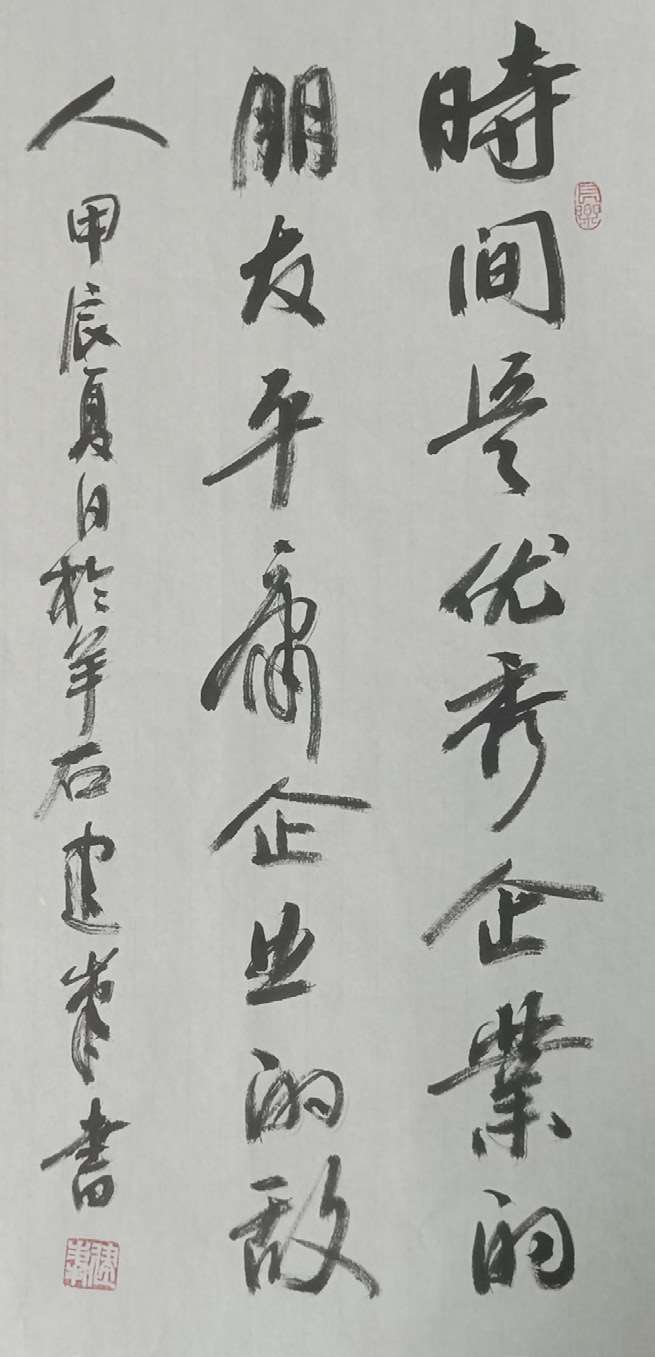 時间是优秀企業的
朋友平庸企业的敌
人 甲辰夏日於羊石建峯書